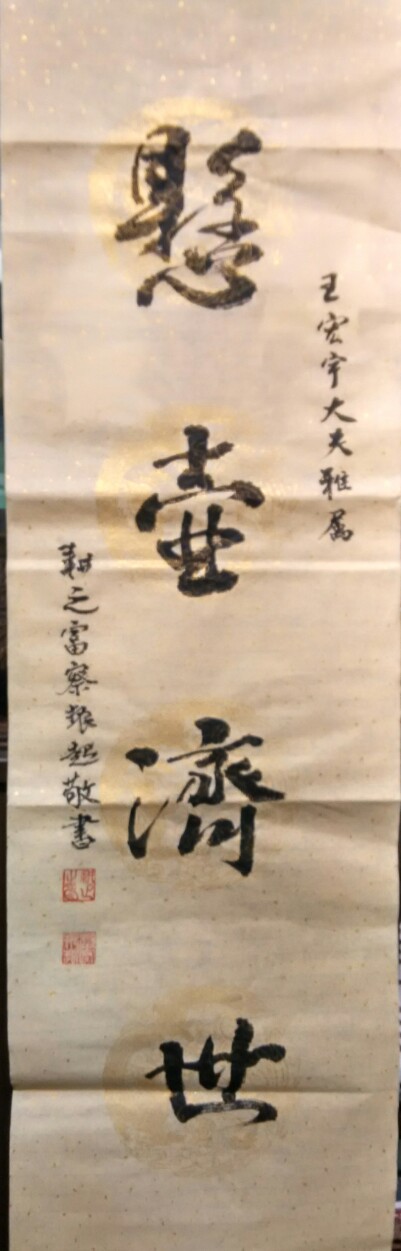 王宏宇大夫雅属
懸壺濟世
耕之富察振起敬書